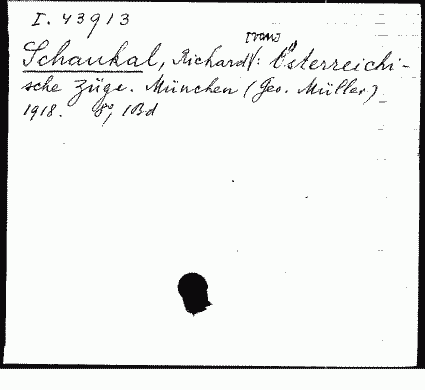 I. 43913
[von]
Schaukal, Richard/: Österreichi-
sche Züge. München (Geo. Müller)
1918. 8°, 1Bd